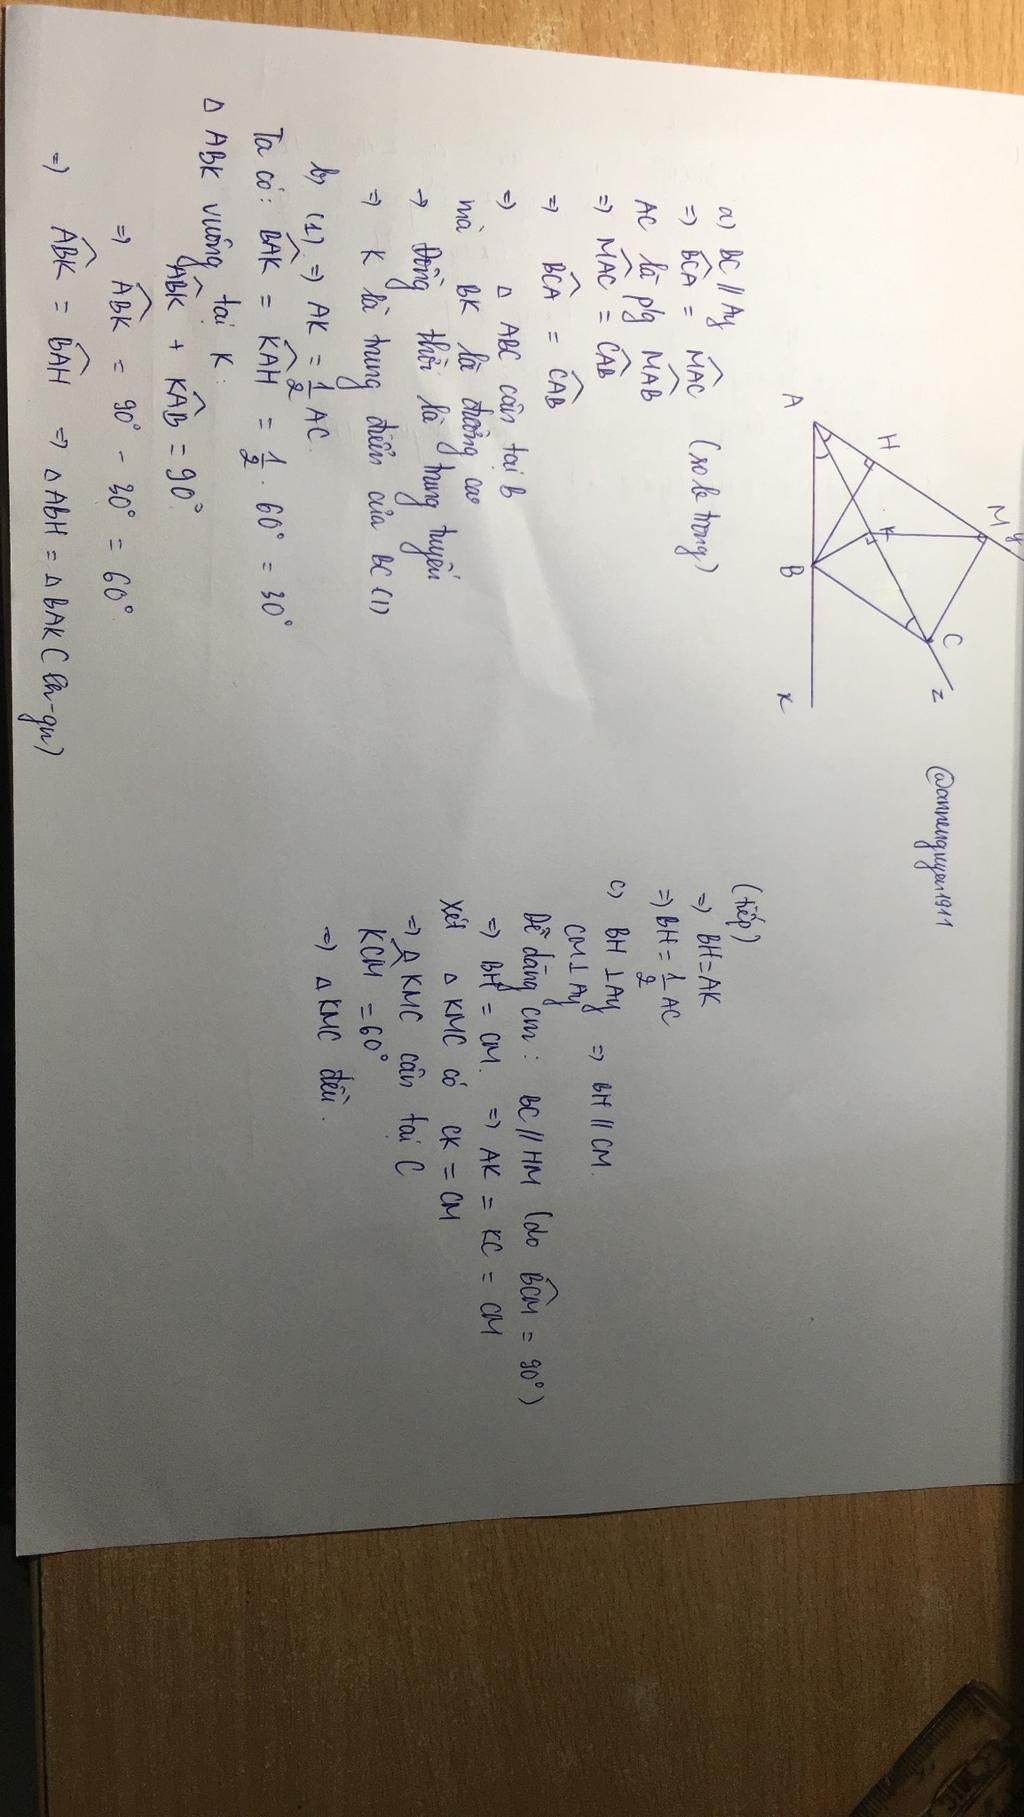 @annenguyen1911
A
H
M
y
K
B
C
z
x
a) BC // Ay
=> BCA^ = MAC^ (so le trong)
AC là p/g MAB^
=> MAC^ = CAB^
=> BCA^ = CAB^
=> Δ ABC cân tại B
mà BK là đường cao
→ Đồng thời là trung tuyến
=> K là trung điểm của BC (1)
b) (1) => AK = 1/2 AC.
Ta có: BAK^ = KAH^ = 1/2 . 60° = 30°
Δ ABK vuông tại K:
ABK^ + KAB^ = 90°
=> ABK^ = 90° - 30° = 60°
=> ABK^ = BAH^ => Δ ABH = Δ BAK (ch-gn)
(tiếp)
=> BH = AK
=> BH = 1/2 AC
c) BH ⊥ Ay => BH // CM.
CM ⊥ Ay
Dễ dàng cm: BC // HM (do BCM^ = 90°)
=> BH = CM. => AK = KC = CM
Xét Δ KMC có CK = CM
=> Δ KMC cân tại C
KCM^ = 60°
=> Δ KMC đều.